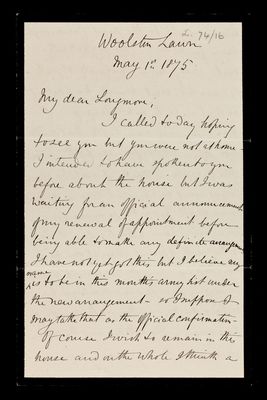 L. 74/16
Woolston Lawn
May 1st 1875
My dear Longmore,
I called to day hoping
to see you but you were not at home.
I intended to have spoken to you
before about the house but I was
waiting for an official announcement
of my renewal of appointment before
being able to make any definite arrangement
I have not yet got this but I believe my
name
is to be in this month's army list under
the new arrangement so I suppose I
may take that as the official confirmation
Of course I wish to remain in this
house and on the whole I think a